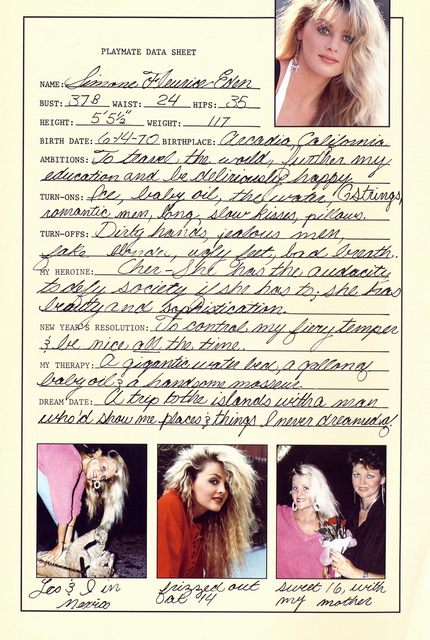 PLAYMATE DATA SHEET
NAME: Simone Fleurice Eden
BUST: 37B WAIST: 24 HIPS: 35
HEIGHT: 5'5½" WEIGHT: 117
BIRTH DATE: 6-14-70 BIRTHPLACE: Arcadia, California
AMBITIONS: To travel the world, further my
education and be deliriously happy.
TURN-ONS: Ice, baby oil, the water, G strings,
romantic men, long, slow kisses, pillows.
TURN-OFFS: Dirty hands, jealous men,
fake blondes, ugly feet, bad breath.
MY HEROINE: Cher-She has the audacity
to defy society if she has to; she has
beauty and sophistication.
NEW YEAR'S RESOLUTION: To control my fiery temper
& be nice all the time.
MY THERAPY: A gigantic water bed, a gallon of
baby oil & a handsome masseur.
DREAM DATE: A trip to the islands with a man
who'd show me places & things I never dreamed of.
& I in
Mexico
frizzed out
at 14
sweet 16, with
my mother